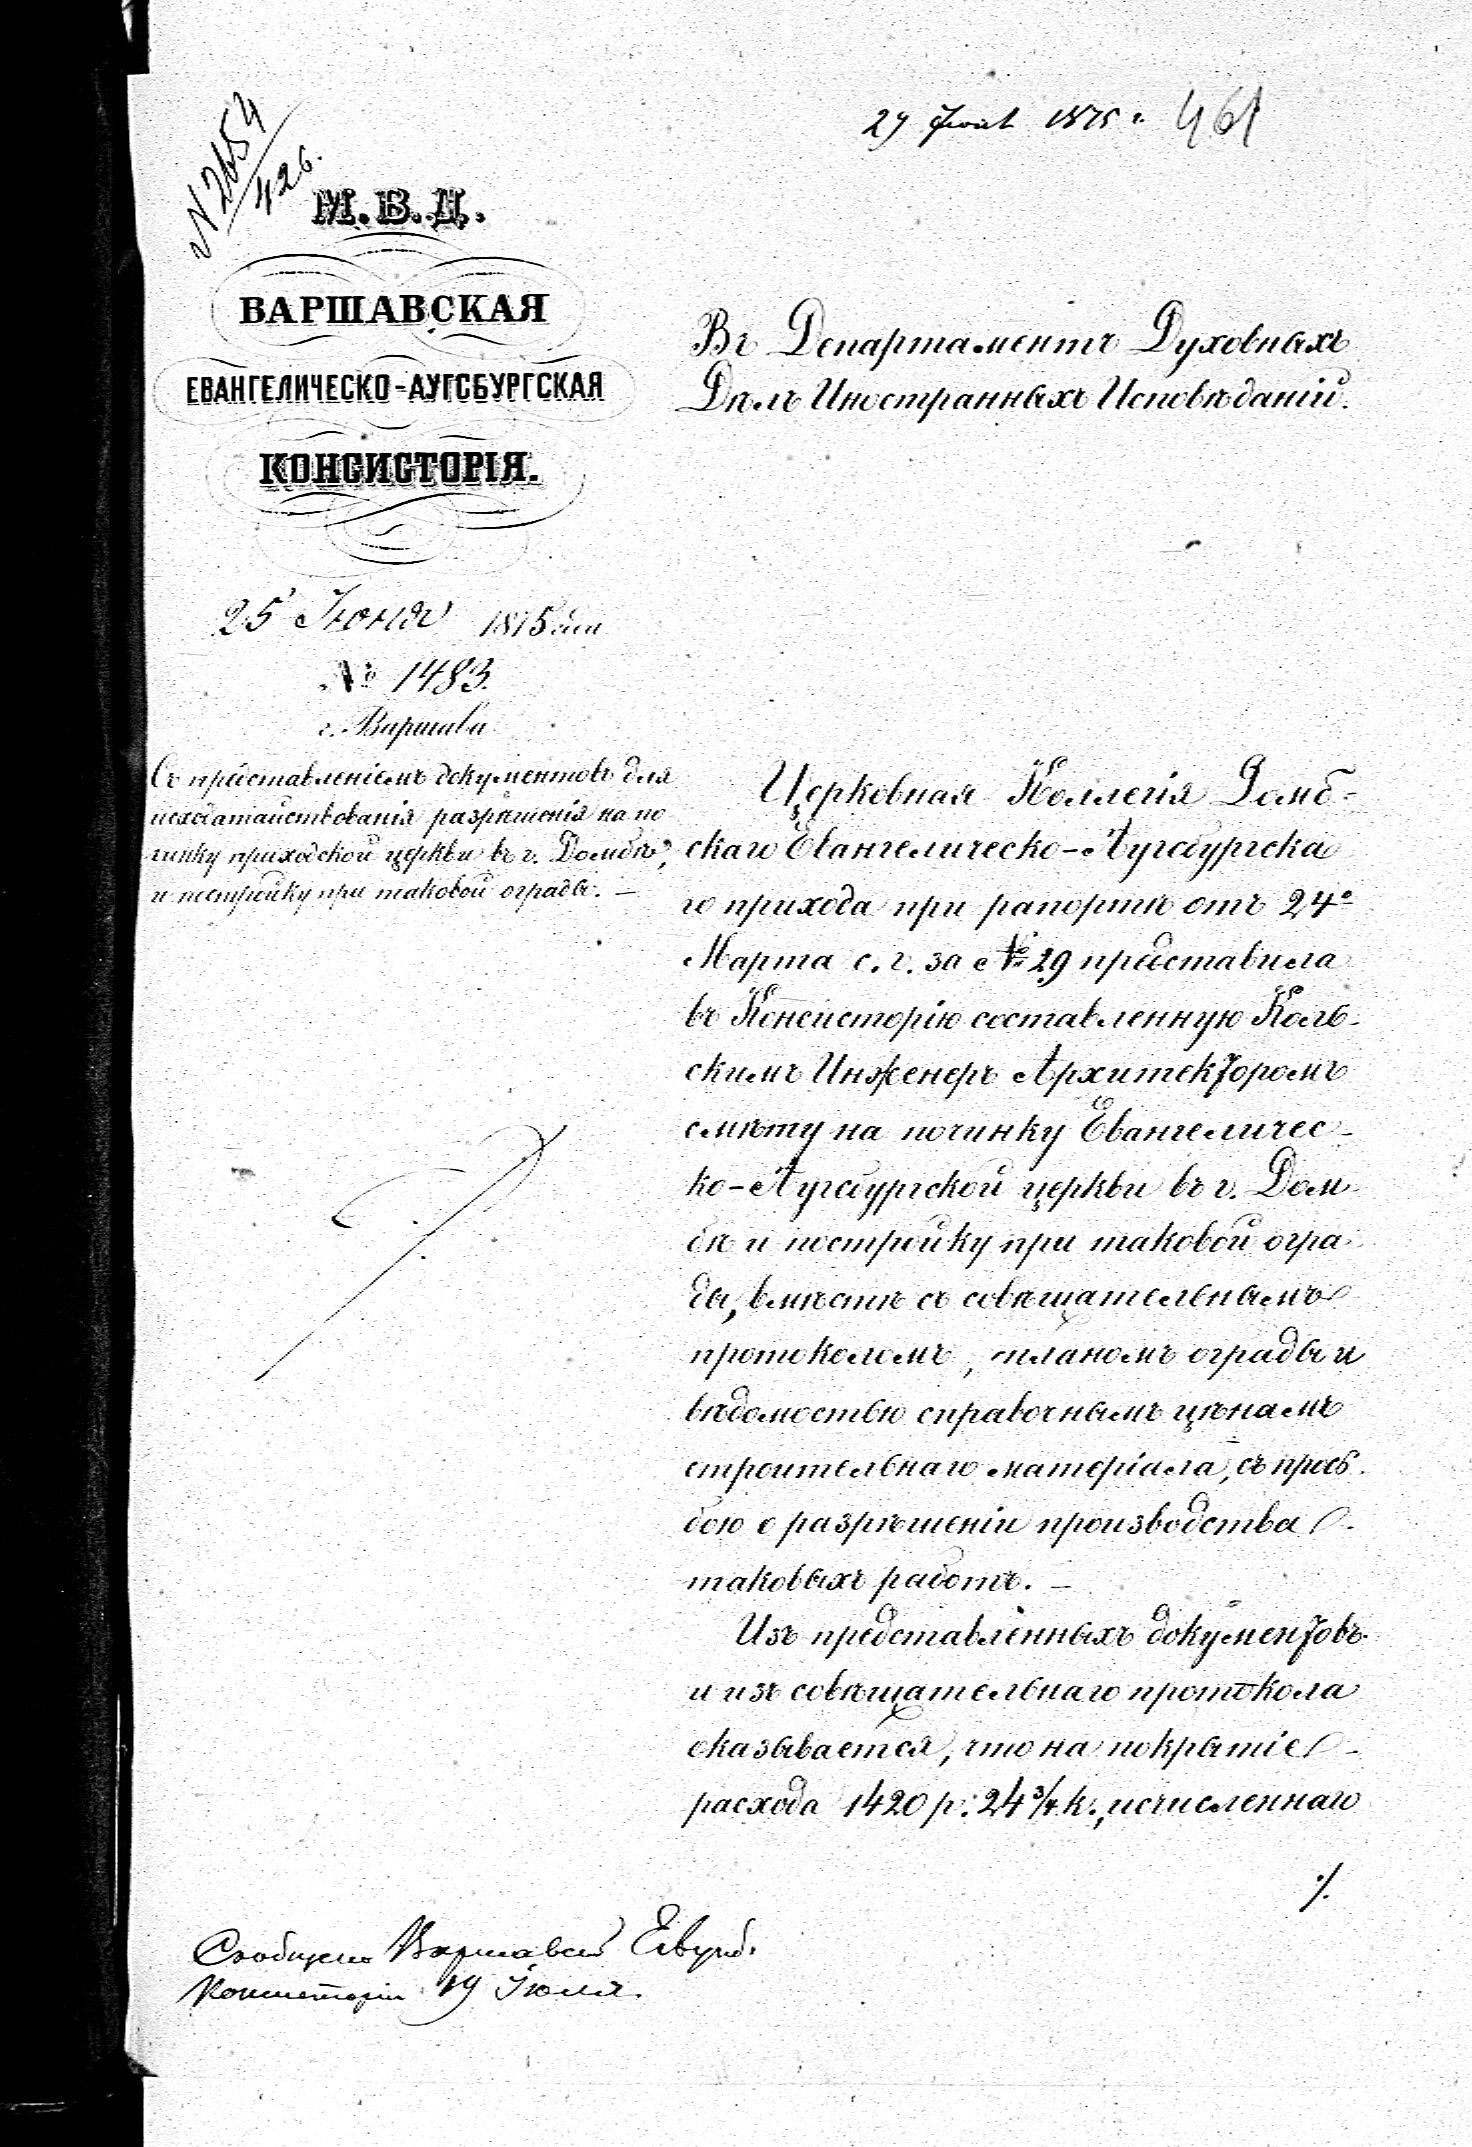 29 Июня 1875 г. 461
№ 2654/426.
М.В.Д.
ВАРШАВСКАЯ
ЕВАНГЕЛИЧЕСКО-АУГСБУРГСКАЯ
КОНСИСТОРІЯ.
25 Іюня 1875 дня
№ 1483.
г. Варшава
Съ представленіемъ документовъ для
исходатайствованія разрѣшенія на по
чинку приходской церкви въ г. Домбѣ,
и постройку при таковой ограды. —
Въ Департаментъ Духовныхъ
Дѣлъ Иностранныхъ Исповѣданій.
Церковная Коллегія Домб-
скаго Евангелическо-Аугсбургска
го прихода при рапортѣ отъ 24го
Марта с. г. за № 29 представила
въ Консисторію составленную Коль-
скимъ Инженеръ Архитекторомъ
смѣту на починку Евангеличес-
ко-Аугсбургской церкви въ г. Дом
бѣ и постройку при таковой огра
ды, вмѣстѣ съ совѣщательнымъ
протоколомъ, планомъ ограды и
вѣдомостью справочнымъ цѣнамъ
строительнаго матеріала, съ прось
бою о разрѣшеніи производства
таковыхъ работъ. —
Изъ представленныхъ документовъ
и изъ совѣщательнаго протокола
оказывается, что на покрытіе
расхода 1420 р. 24 3/4 к., исчисленнаго
./.
Сообщено Варшавской
Консисторіи 19 Іюля.